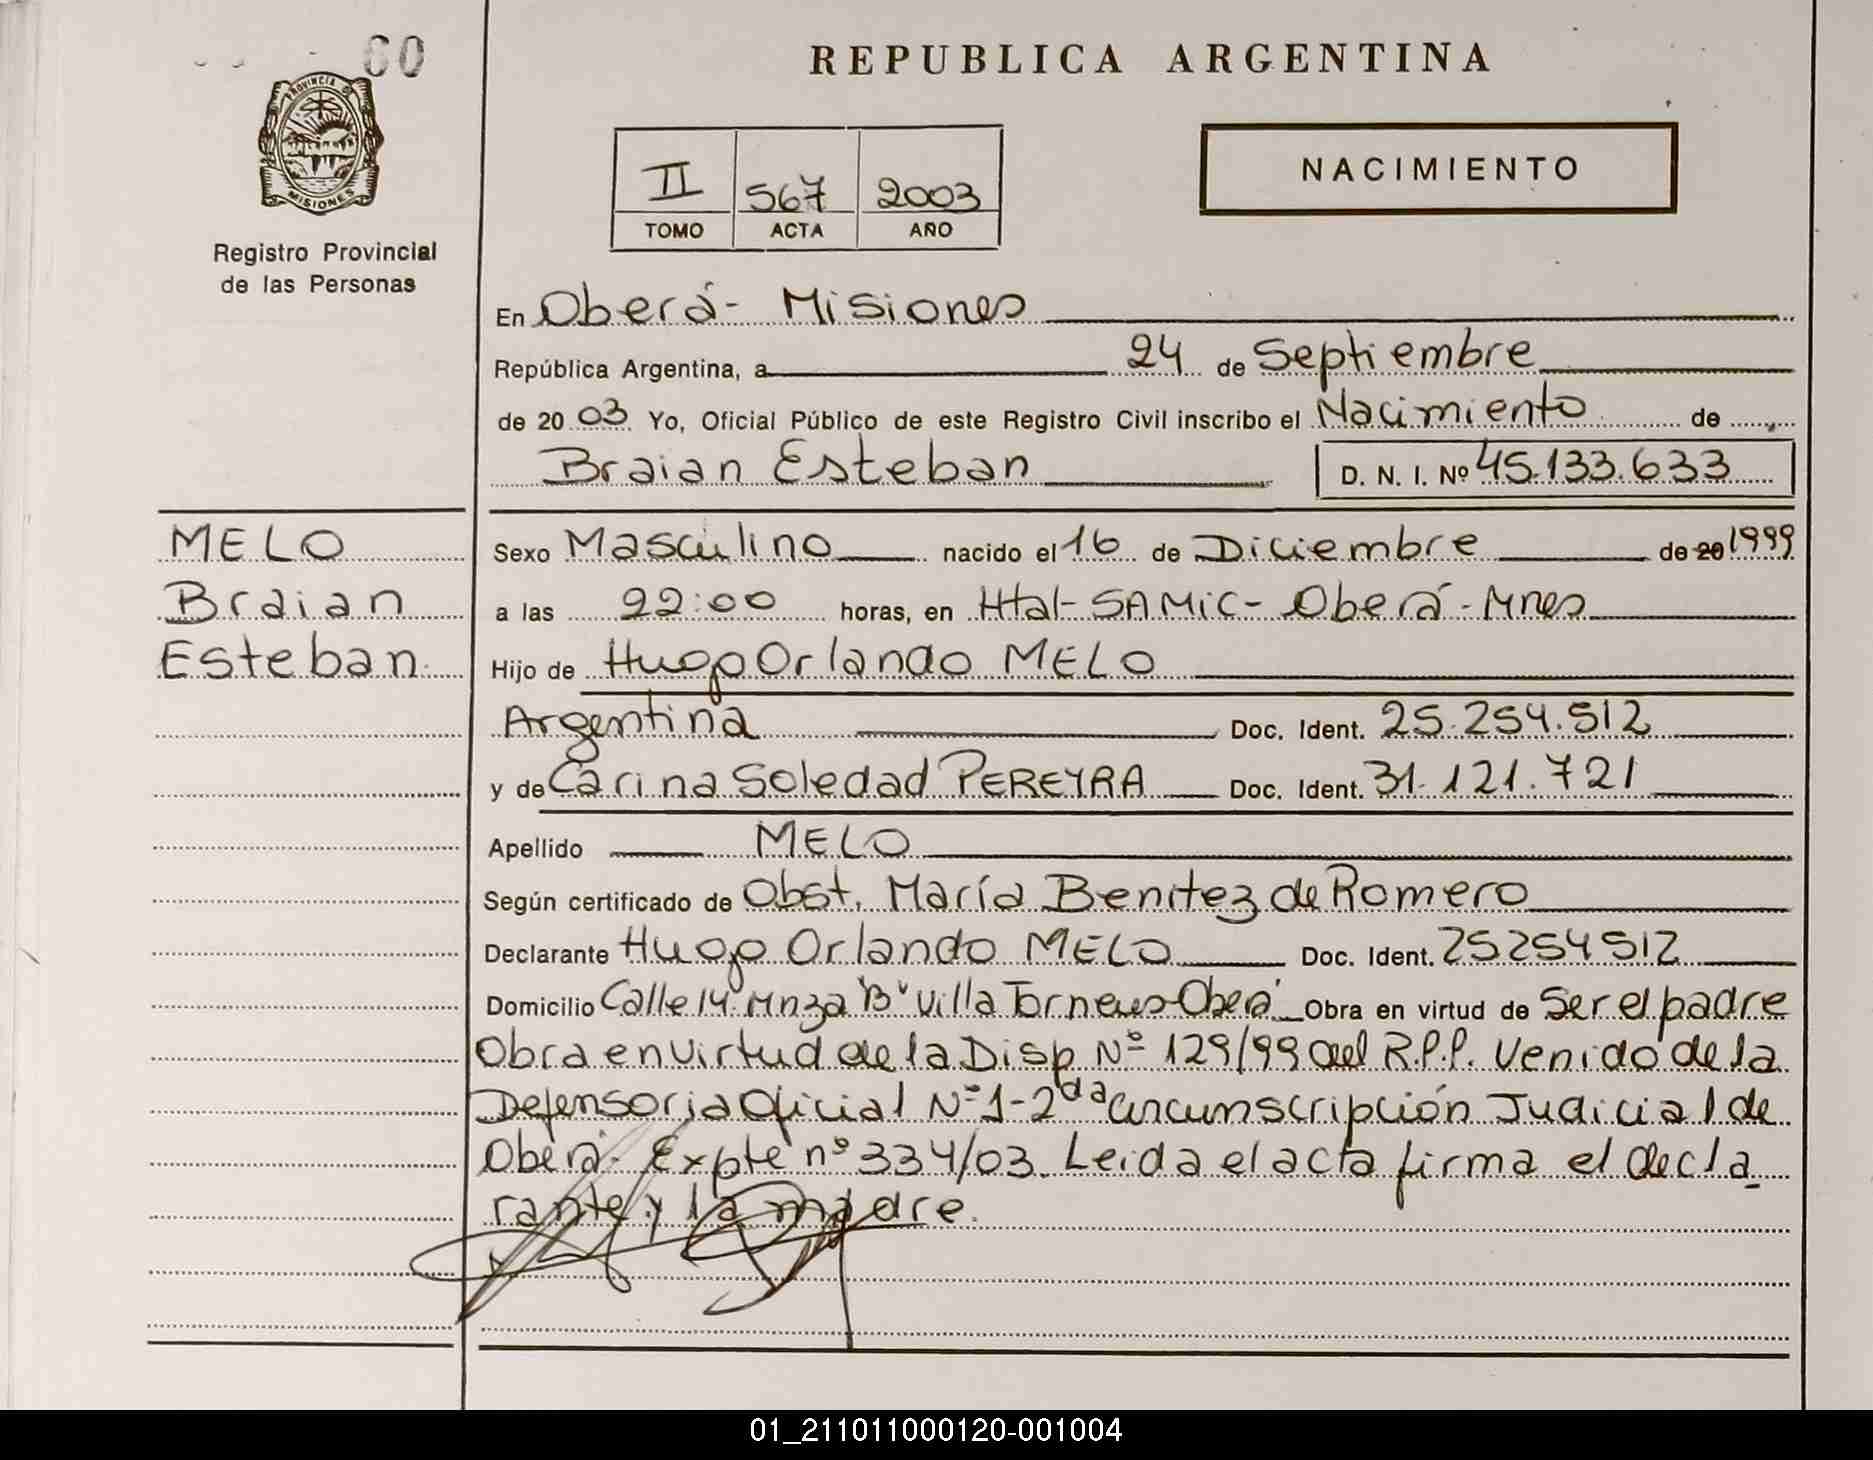 60
REPUBLICA ARGENTINA
PROVINCIA DE
MISIONES
Registro Provincial
de las Personas
II 567 2003
TOMO ACTA AÑO
NACIMIENTO
En Oberá- Misiones
República Argentina, a 24 de Septiembre
de 20 03 Yo, Oficial Público de este Registro Civil inscribo el Nacimiento de
Braian Esteban D. N. I. Nº 45.133.633
MELO
Braian
Esteban
Sexo Masculino nacido el 16 de Diciembre de 20 1999
a las 22:00 horas, en Htal-SAMIC- Oberá-Mnes
Hijo de Hugo Orlando MELO
Argentina Doc. Ident. 25.254.512
y de Carina Soledad PEREYRA Doc. Ident. 31.121.721
Apellido MELO
Según certificado de Obst. María Benitez de Romero
Declarante Hugo Orlando MELO Doc. Ident. 25254512
Domicilio Calle 14 Mnza "B" Villa Torneus-Oberá Obra en virtud de Ser el padre
Obra en virtud de la Disp. Nº 129/99 del R.P.P. Venido de la
Defensoria Oficial Nº 1-2da Circunscripción Judicial de
Oberá- Expte nº 334/03. Leida el acta firma el decla
rante y la madre.
01_211011000120-001004